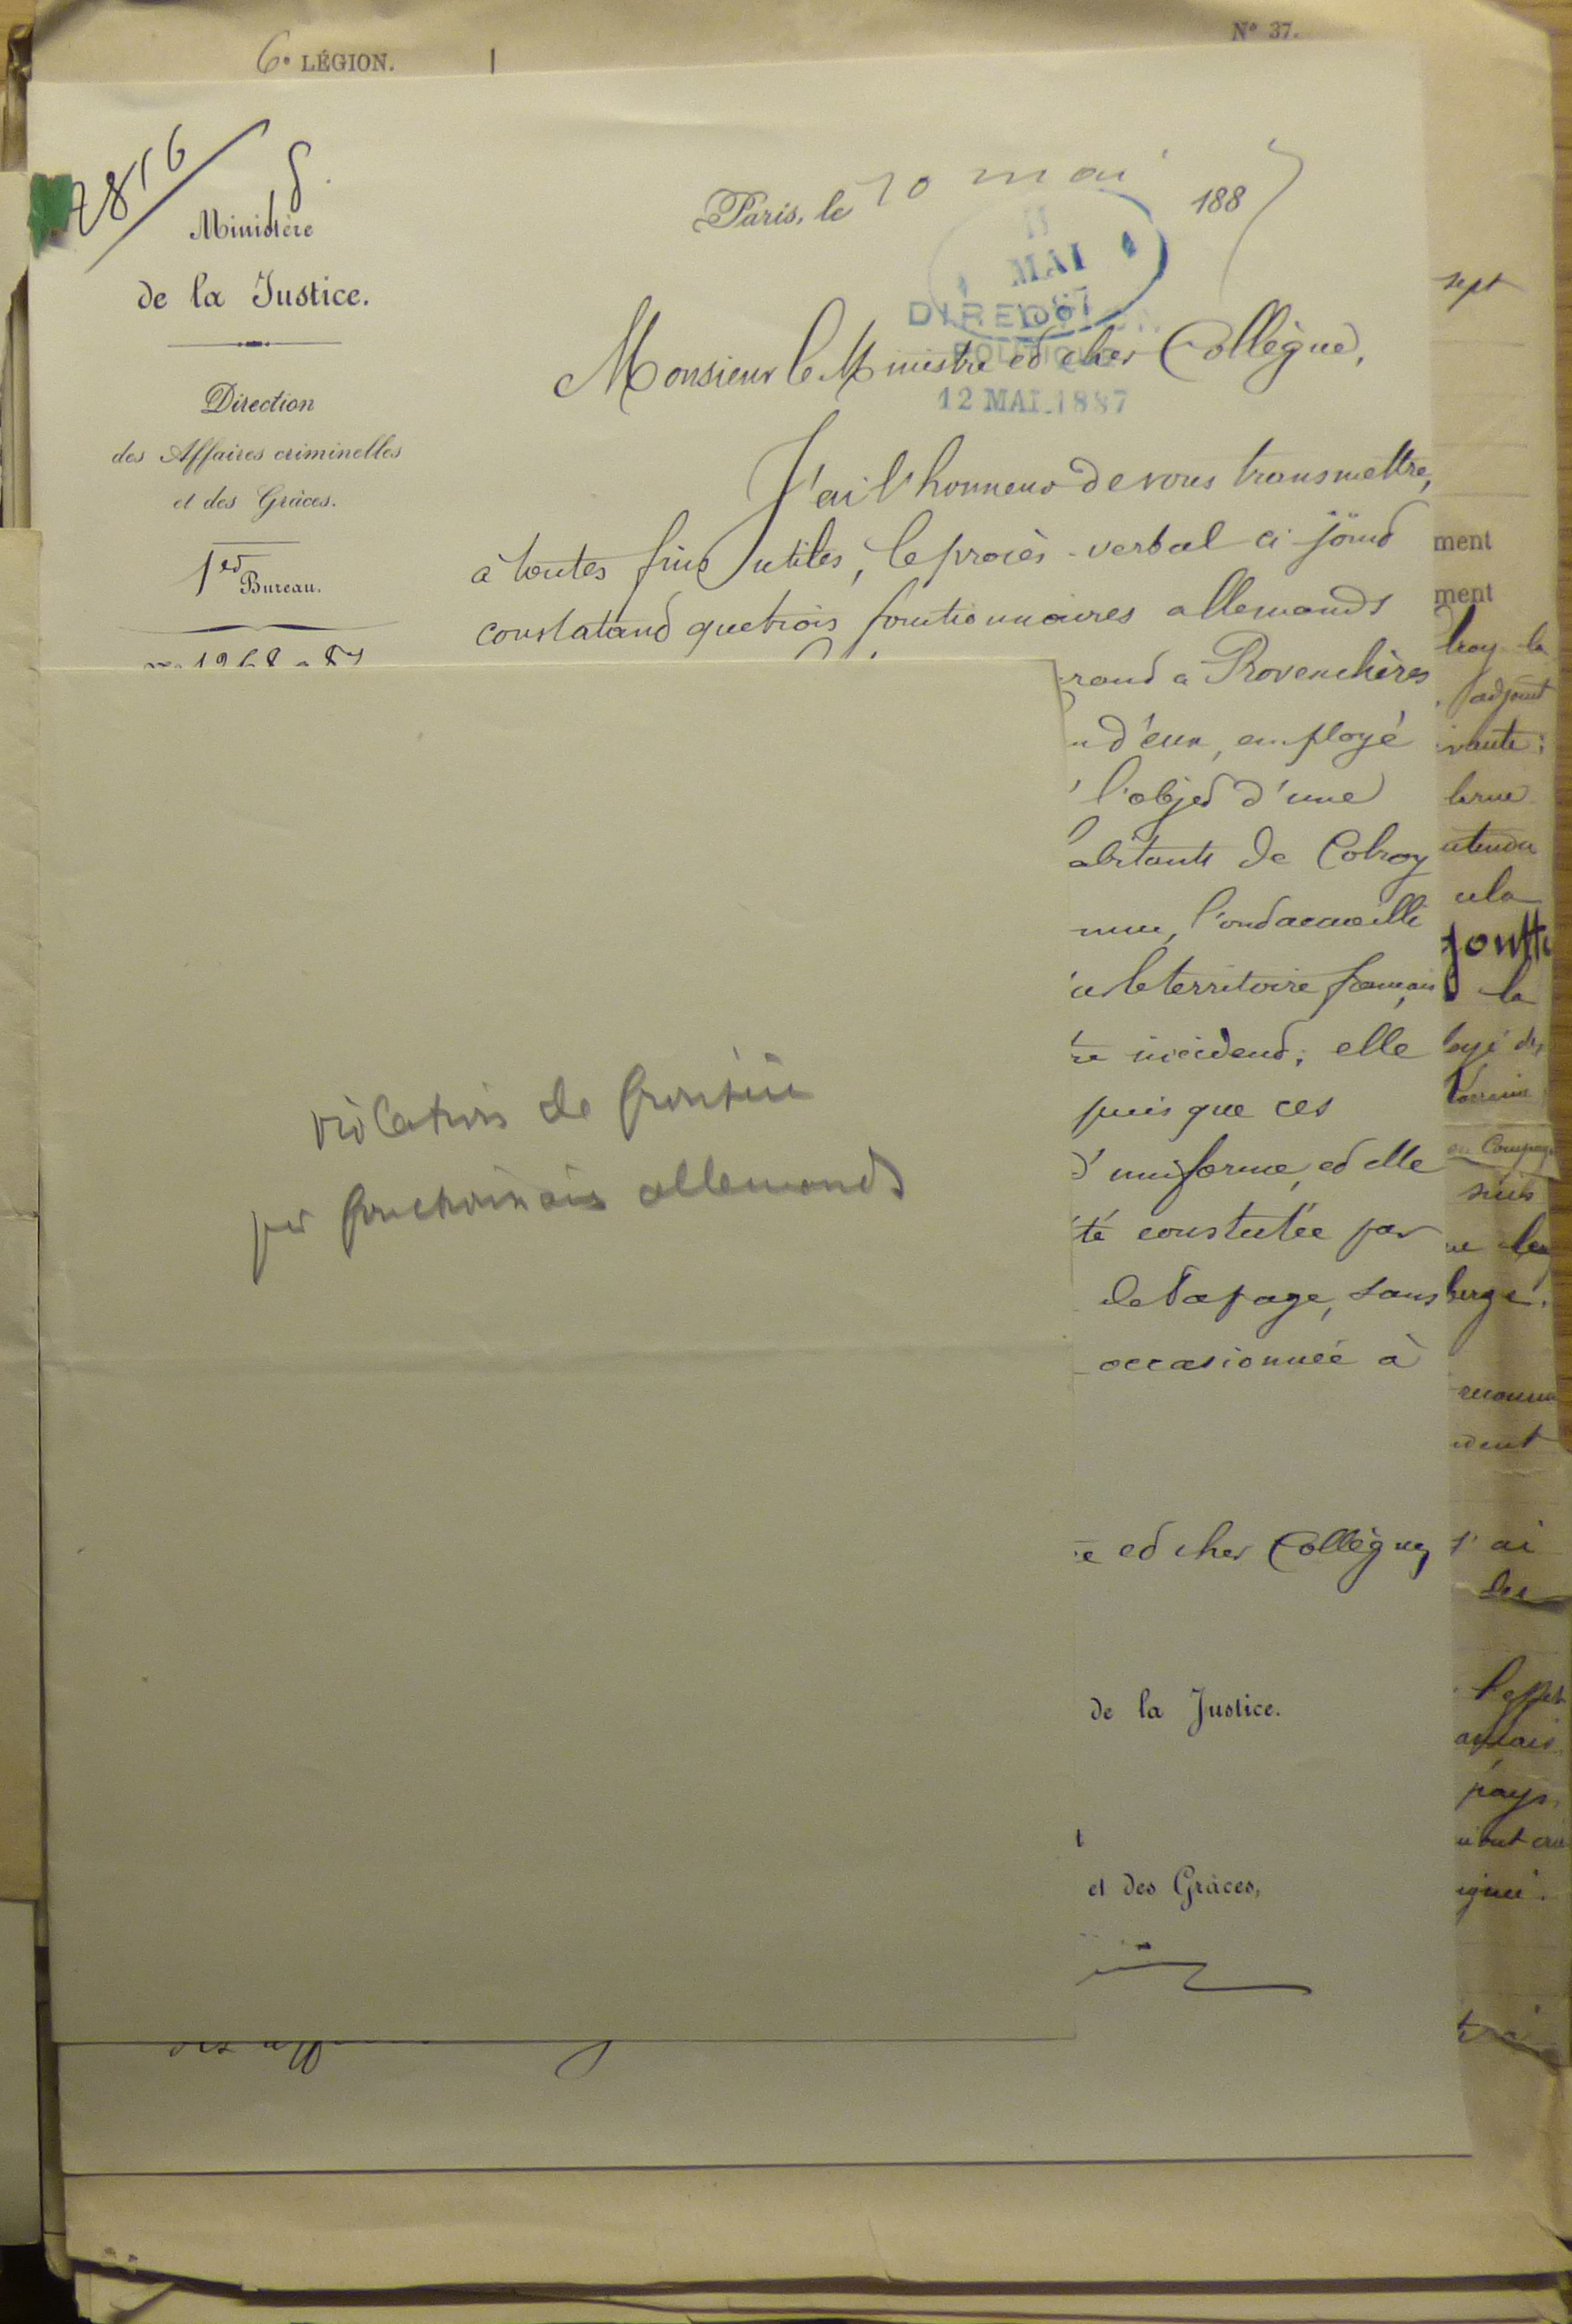 6e LÉGION.
N° 37.
2816
Ministère
de la Justice.
Direction
des Affaires criminelles
et des Grâces.
1er Bureau.
Paris, le 10 mai 1887
11
MAI
1887
DIRECTION
POLITIQUE
12 MAI 1887
Monsieur le Ministre et cher Collègue,
J'ai l'honneur de vous transmettre,
à toutes fins utiles, le procès-verbal ci-joint
constatant que trois fonctionnaires allemands
rand a Provenchères
n d'eux, employé
l'objet d'une
abitants de Colroy
l'ont accueilli
le territoire français
re incident; elle
puisque ces
d'uniforme, et elle
té constatée par
de tapage, sans
occasionnée à
e et cher Collègue,
de la Justice.
et des Grâces,
violation de frontière
par fonctionnaires allemands
sept
ment
ment
lroy la
adjoint
ivante:
la
la
suis
berge.
ai
des
l'effet
pays